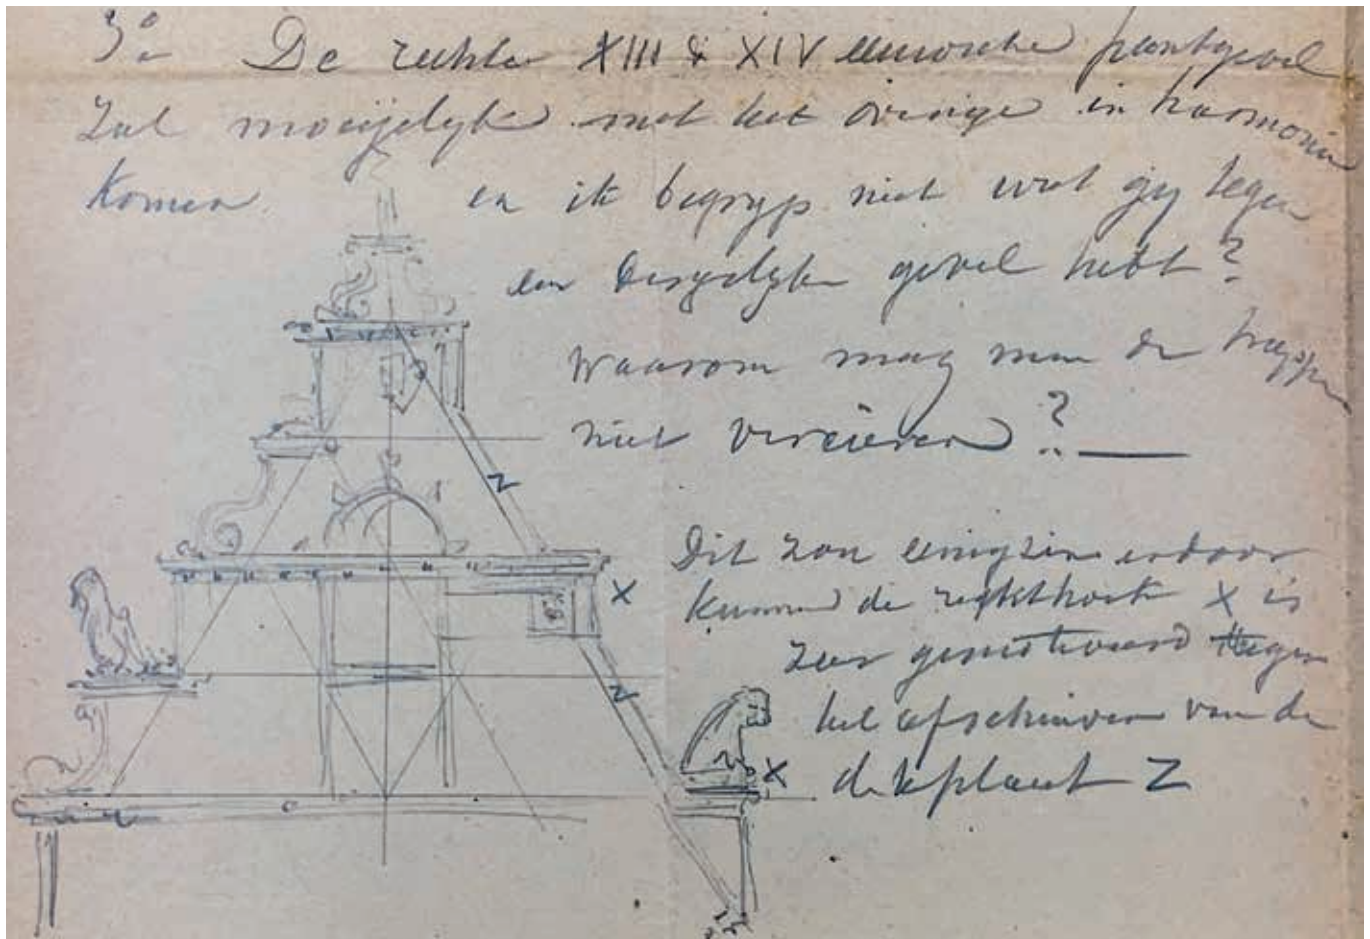 3º De rechte XIII & XIV eeuwsche puntgevel
zal moeijelyk met het overige in harmonie
komen en ik begryp niet wat gy tegen
een dergelyke gevel hebt?
Waarom mag men de trappen
niet versieren? —
Dit zou eenigzins erdoor
kunnen de rechthoek X is
zeer gemotiveerd tegen
het afschuiven van de
dekplaat Z
Z
X
Z
X